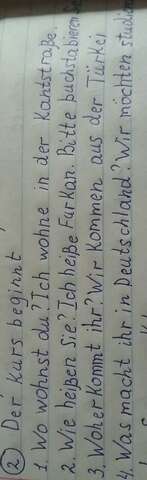 ② Der Kurs beginnt
1. Wo wohnst du? Ich wohne in der Kantstraße.
2. Wie heißen Sie? Ich heiße Furkan. Bitte buchstabieren
3. Woher kommt ihr? Wir kommen aus der Türkei
4. Was macht ihr in Deutschland? Wir möchten studie